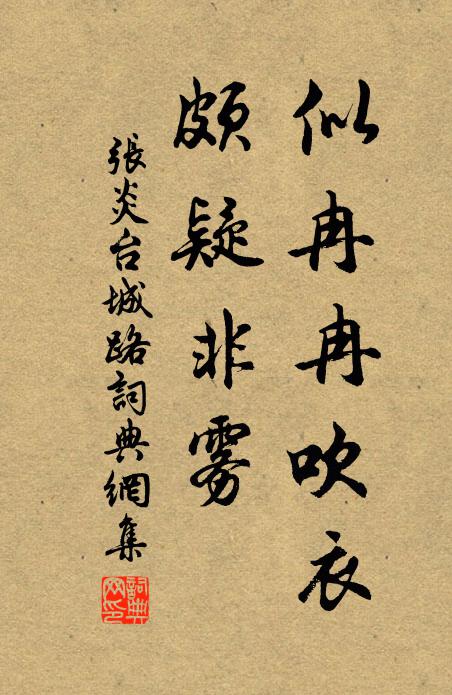 似冉冉吹衣
頗疑非霧
張炎台城路詞典網集
詞典
网印